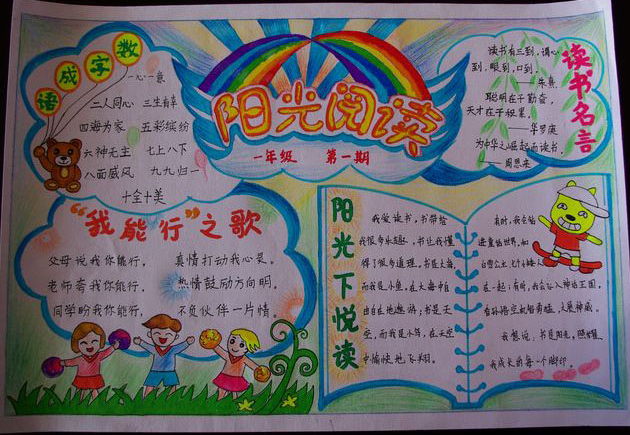 数字成语
一心一意
二人同心 三生有幸
四海为家 五彩缤纷
六神无主 七上八下
八面威风 九九归一
十全十美
阳光阅读
一年级 第一期
读书名言
读书有三到,谓心
到,眼到,口到
——朱熹
聪明在于勤奋,
天才在于积累。
——华罗庚
为中华之崛起而读书。
——周恩来
“我能行”之歌
父母说我你能行, 真情打动我心灵。
老师夸我你能行, 热情鼓励方向明。
同学盼我你能行, 不负伙伴一片情。
阳光下悦读
我爱读书,书带给
我很多乐趣,书让我懂
得了很多道理。书是大海,
而我是小鱼,在大海中自
由自在地遨游;书是天
空,而我是小鸟,在天空
中愉快地飞翔。
有时,我会钻
进童话世界,和
白雪公主、七个小矮人
在一起;有时,我会钻入神话王国,
看孙悟空机智勇猛,大展神威。
我想说,书是阳光,照耀
我成长的每一个脚印。